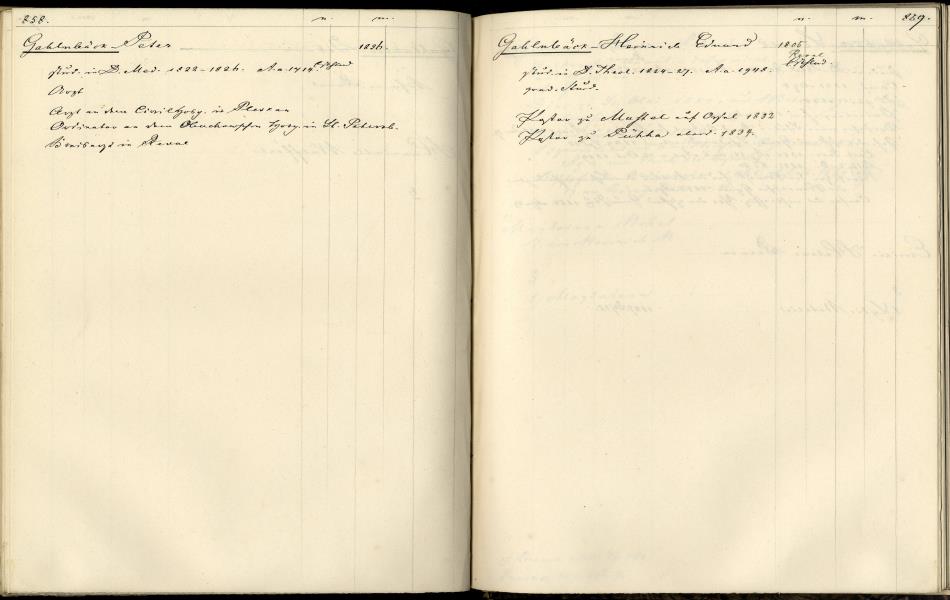 858.
n.
m.
Gahlnbäck Peter
stud. in D. Med. 1822-1826. A.a. 1419. Estland
Arzt
Arzt an dem Civil Hosp. in Pleskau
Ordinator an dem Obuchowschen Hosp. in St. Petersb.
Kreisarzt in Reval
n.
m.
859.
Gahlnbäck Heinrich Eduard 1806
Reval
Estland.
stud. in D. Theol. 1824-27. A.a. 1948.
grad. Stud.
Pastor zu Mustel auf Oesel 1832
Pastor zu Pühha eben. 1834.